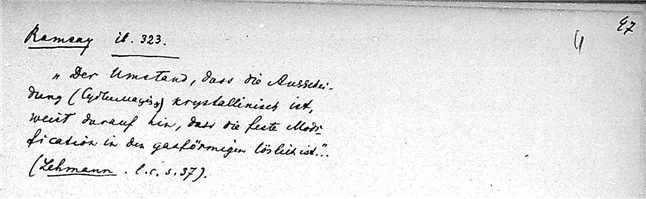 47
4
Ramsay ib. 323.
„ Der Umstand, dass die Ausschei-
dung () krystallinisch ist,
weist darauf hin, dass die feste Modi-
fication in den gasförmigen löslich ist."
(Lehmann. l. c. s. 37).